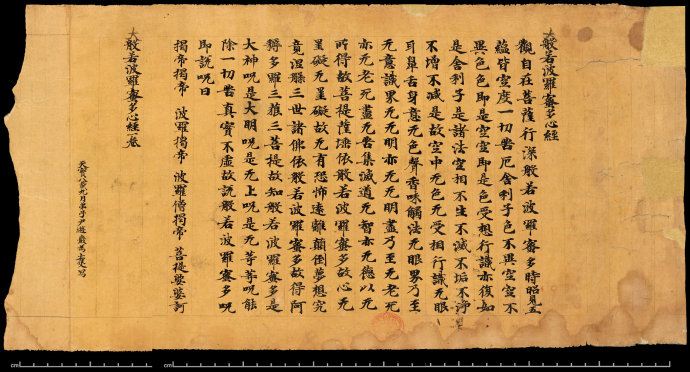 大般若波羅蜜多心經
觀自在菩薩行深般若波羅蜜多時照見五
蘊皆空度一切苦厄舍利子色不異空空不
異色色即是空空即是色受想行識亦復如
是舍利子是諸法空相不生不滅不垢不淨
不增不減是故空中无色无受相行識无眼
耳鼻舌身意无色聲香味觸法无眼界乃至
无意識界无无明亦无无明盡乃至无老死
亦无老死盡无苦集滅道无智亦无德以无
所得故菩提薩埵依般若波羅蜜多故心无
罣礙无罣礙故无有恐怖遠離顛倒夢想究
竟涅槃三世諸佛依般若波羅蜜多故得阿
耨多羅三藐三菩提故知般若波羅蜜多是
大神呪是大明呪是无上呪是无等等呪能
除一切苦真實不虛故說般若波羅蜜多呪
即說呪曰
揭帝揭帝 波羅揭帝 波羅僧揭帝 菩提娑婆訶
大般若波羅蜜多心經一卷
天寶八 九月 子尹遊嚴 寫
cm
cm